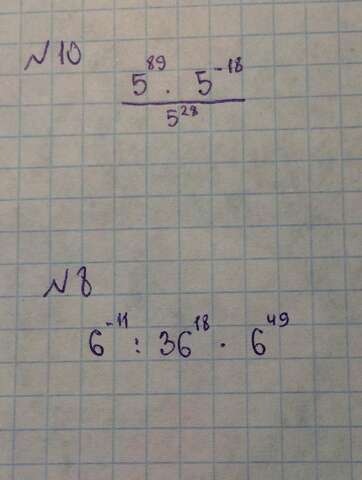 №10
5^89 · 5^-18
5^28
№8
6^-11 : 36^18 · 6^49